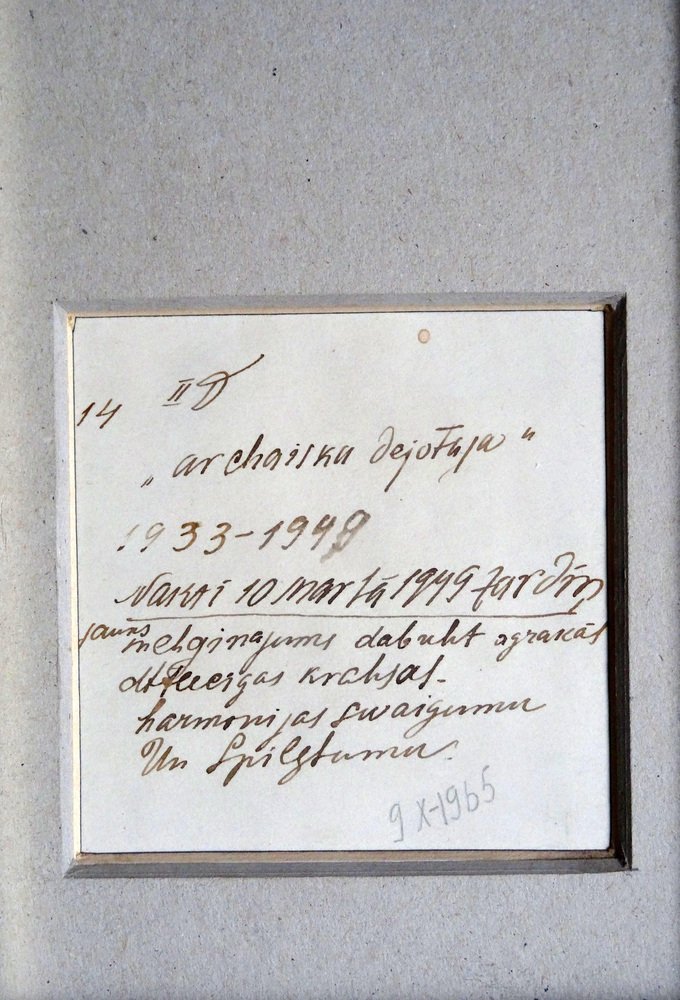 14 II D
„archaiska dejotāja"
1933-1949
Naktī 10 martā 1949 Jardiņ
jauns
mehginajums dabuht agrakās
attiecigas krahsas-
harmonijas swaigumu
Un Spilgtumu.
9 X-1965